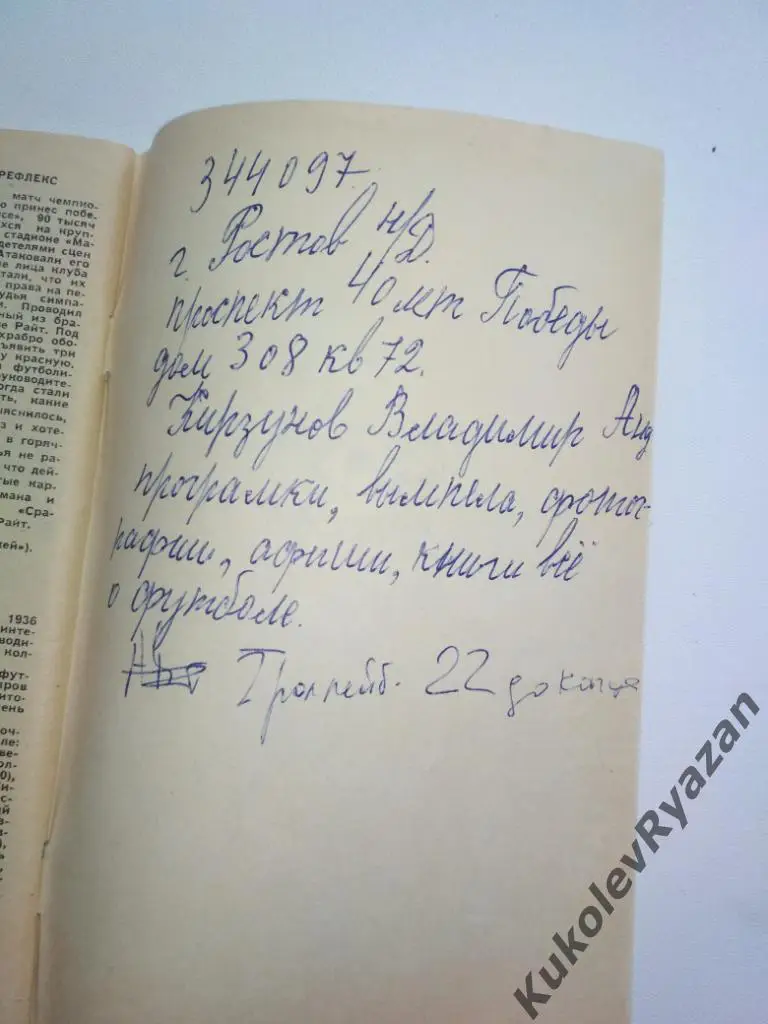 РЕФЛЕКС
матч чемпио-
о принес побе-
се», 90 тысяч
хся на круп-
стадионе «Ма-
детелями сцен
Атаковали его
ые лица клуба
тали, что их
права на пе-
удья симпа-
и. Проводил
ный из бра-
е Райт. Под
храбро обо-
ъявить три
у красную.
футболи-
уководите-
огда стали
ть, какие
ыяснилось,
з и хоте-
в горяч-
ья не ра-
что дей-
тые кар-
мана и
«Сра-
Райт.
ей»).
1936
инте-
води-
кол-
фут-
аров
ито-
ень
оч-
ле:
ве-
ол-
0),
би-
с-
ий
в-
в-
).
344097
г. Ростов н/Д.
проспект 40 лет Победы
дом 308 кв 72.
Кирзунов Владимир Анд
програмки, вымпела, фото-
графии, афиши, книги всё
о футболе.
Троллейб. 22 до конца
KukolevRyazan